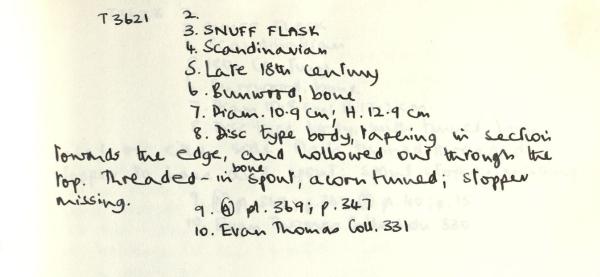 T3621 2.
3. SNUFF FLASK
4. Scandinavian
5. Late 18th century
6. Burrwood, bone
7. Diam. 10.9 cm; H. 12.9 cm
8. Disc type body, tapering in section
towards the edge, and hollowed out through the
top. Threaded-in bone spout, acorn turned; stopper
missing.
9. Ⓐ pl. 369; p. 347
10. Evan Thomas Coll. 331